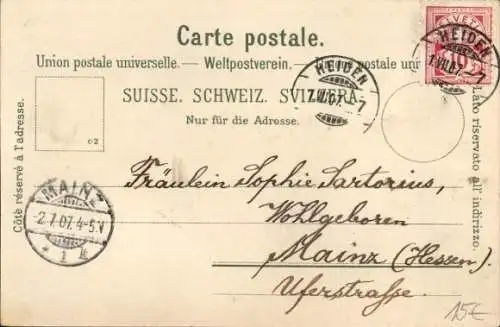 Carte postale.
Union postale universelle. — Weltpostverein. — postale uni
SUISSE. SCHWEIZ. SVIZZERA.
Nur für die Adresse.
Côté réservé à l'adresse.
Lato riservato all' indirizzo.
o2
HELVETIA
HEIDEN
1.VII.07. -7
HEIDEN
1.VII.07. -7
MAINZ
2.7.07. 4-5.V
* 1 k
Fräulein Sophie Sartorius,
Wohlgeboren
Mainz (Hessen).
Uferstraße.
15€